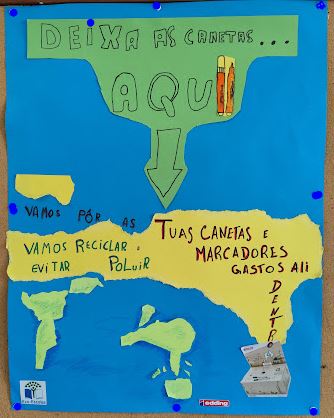 DEIXA AS CANETAS...
AQUI
VAMOS PÔR AS TUAS CANETAS E
MARCADORES
GASTOS Ali
DENTRO
VAMOS RECICLAR E
EVITAR POLUIR
Eco-Escolas
edding